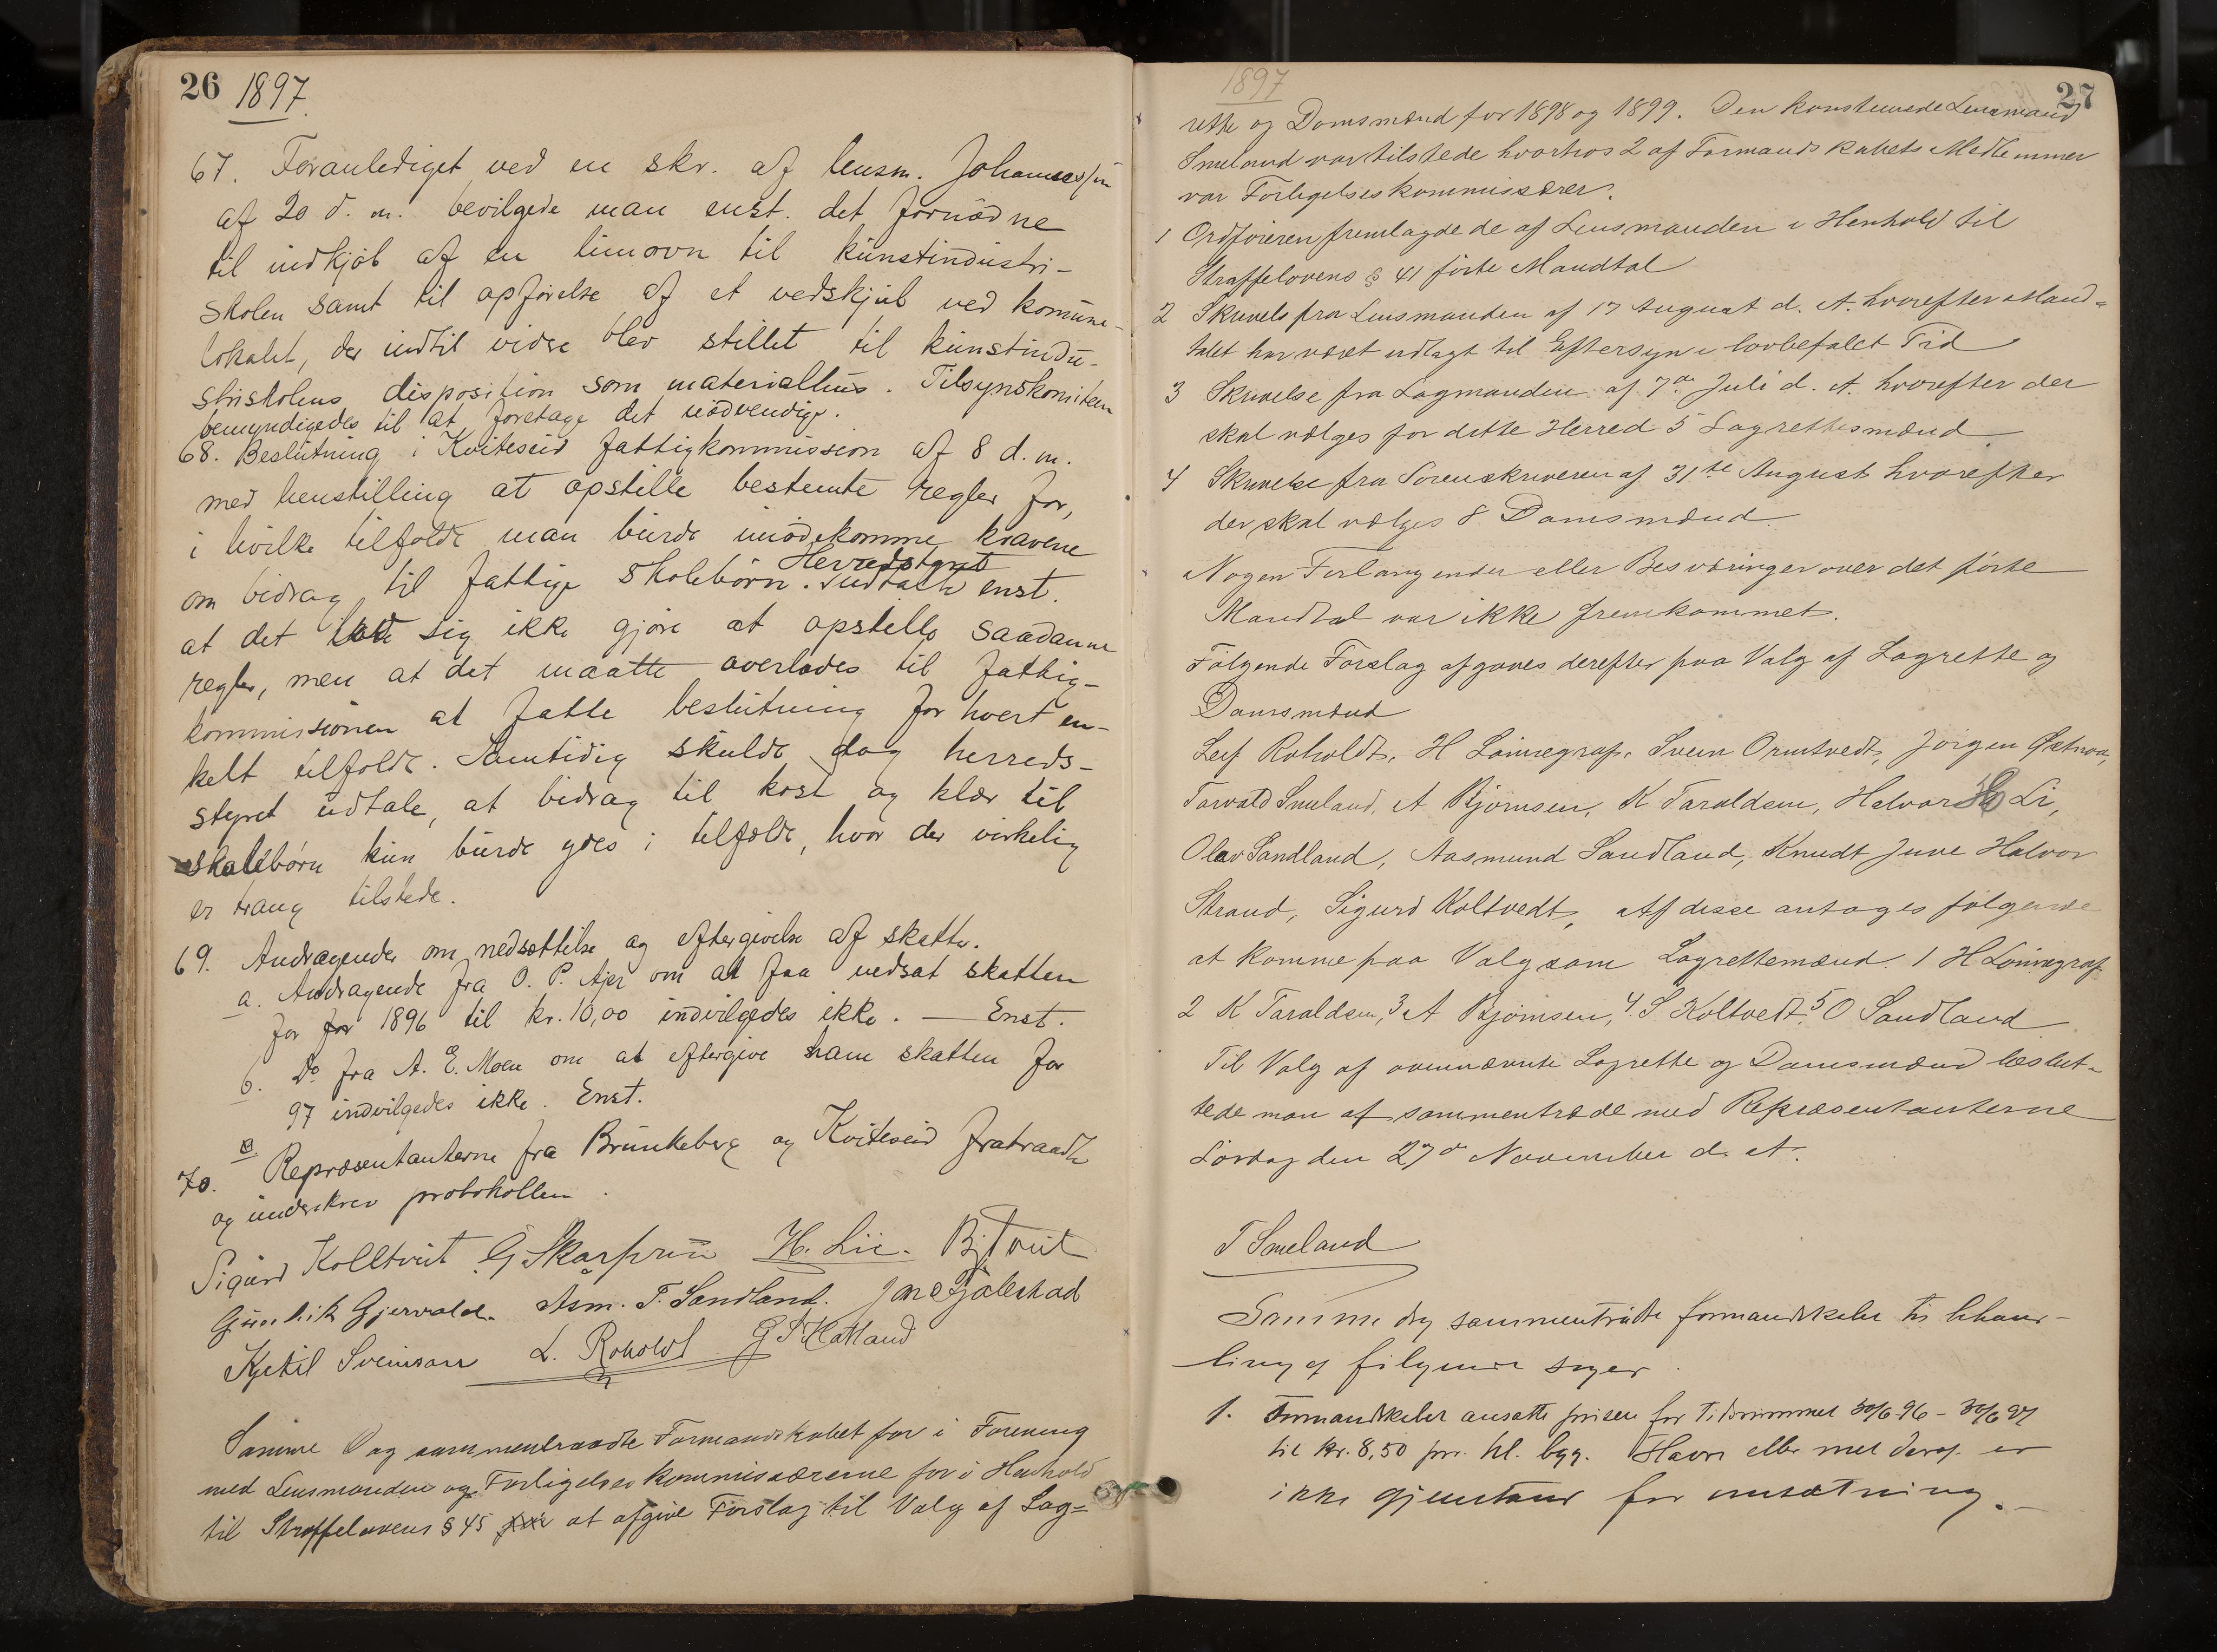 26 1897.
67. Foranlediget ved en skr. af lensm. Johannessen
af 20 d. m. bevilgede man enst. det fornødne
til indkjøb af en limovn til kunstindustri-
skolen samt til opførelse af et vedskjul ved komune-
lokalet, der indtil vidre blev stillet til kunstindu-
striskolens disposition som materialhus. Tilsynskomiteen
bemyndigedes til at foretage det nødvendige.
68. Beslutning i Kviteseid fattigkommission af 8 d. m.
med henstilling at opstille bestemte regler for,
i hvilke tilfælde man burde imødekomme kravene
om bidrag til fattige skolebørn. Herredstyret udtalte enst.
at det lod sig ikke gjøre at opstille saadanne
regler, men at det maatte overlades til fattig-
kommissionen at fatte beslutning for hvert en-
kelt tilfælde. Samtidig skulde dog herreds-
styret udtale, at bidrag til kost og klær til
skolebørn kun burde ydes i tilfælde, hvor der virkelig
er trang tilstede.
69. Andragender om nedsættelse og eftergivelse af skatter.
a. Andragende fra O. P. Ajer om at faa nedsat skatten
for for 1896 til kr. 10,00 indvilgedes ikke. — Enst.
b. Do fra A. E. Moen om at eftergive ham skatten for
97 indvilgedes ikke. Enst.
70. Repræsentanterne fra Brunkeberg og Kviteseid fratraadte
og underskrev protokollen.
Sigurd Kolltveit G. Skarprud H. Lie. B. Tveit
Gunleik Gjervolds. Asm. T. Sandland. Jone Fjalestad
Kjetil Sveinson L. Roholdt G T Hatland
Samme Dag sammentraadte Formandskabet for i Forening
med Lensmanden og Forligelseskommissærerne for i Henhold
til Straffelovens § 45 at afgive Forslag til Valg af Lag=
1897 27
rette og Domsmænd for 1898 og 1899. Den konstituerede Lensmand
Smeland var tilstede hvorhos 2 af Formandskabets Medlemmer
var Forligelseskommissærer.
1 Ordføreren fremlagde de af Lensmanden i Henhold til
Straffelovens § 41 førte Mandtal
2 Skrivelse fra Lensmanden af 17 August d. A. hvorefter Mand=
talet har været udlagt til Eftersyn i lovbefalet Tid
3 Skrivelse fra Lagmanden af 7de Juli d. A. hvorefter der
skal vælges for dette Herred 5 Lagrettesmænd.
4 Skrivelse fra Sorenskriveren af 31te August hvorefter
der skal vælges 8 Domsmænd.
Nogen Forlangender eller Besværinger over det førte
Mandtal var ikke fremkommet.
Følgende Forslag afgaves derefter paa Valg af Lagrette og
Domsmænd
Leif Roholdt, H Lønnegraf, Svein Ormtvedt, Jørgen Østmoen,
Torvald Smeland, A Bjørnsen, K Taraldsen, Halvor Li,
Olav Sandland, Aasmund Sandland, Knudt Juve Halvor
Strand, Sigurd Koltvedt, Af disse antages følgende
at komme paa Valg som Lagrettemænd. 1 H Lønnegraf
2 K Taraldsen, 3 A Bjørnsen, 4. S Koltvedt, 5 O Sandland
Til Valg af ovennævnte Lagrette og Domsmænd beslut-
tede man at sammentræde med Repræsentanterne
Lørdag den 27de November d. A.
T Smeland
Samme dag sammentraadte formandskabet til behand-
ling af følgende sager.
1. Formandskabet ansatte prisen for Tidsrummet 30/6 96 – 30/6 97
til Kr. 8,50 pr. hl. byg. Havre eller mel deraf er
ikke gjenstand for omsætning. –